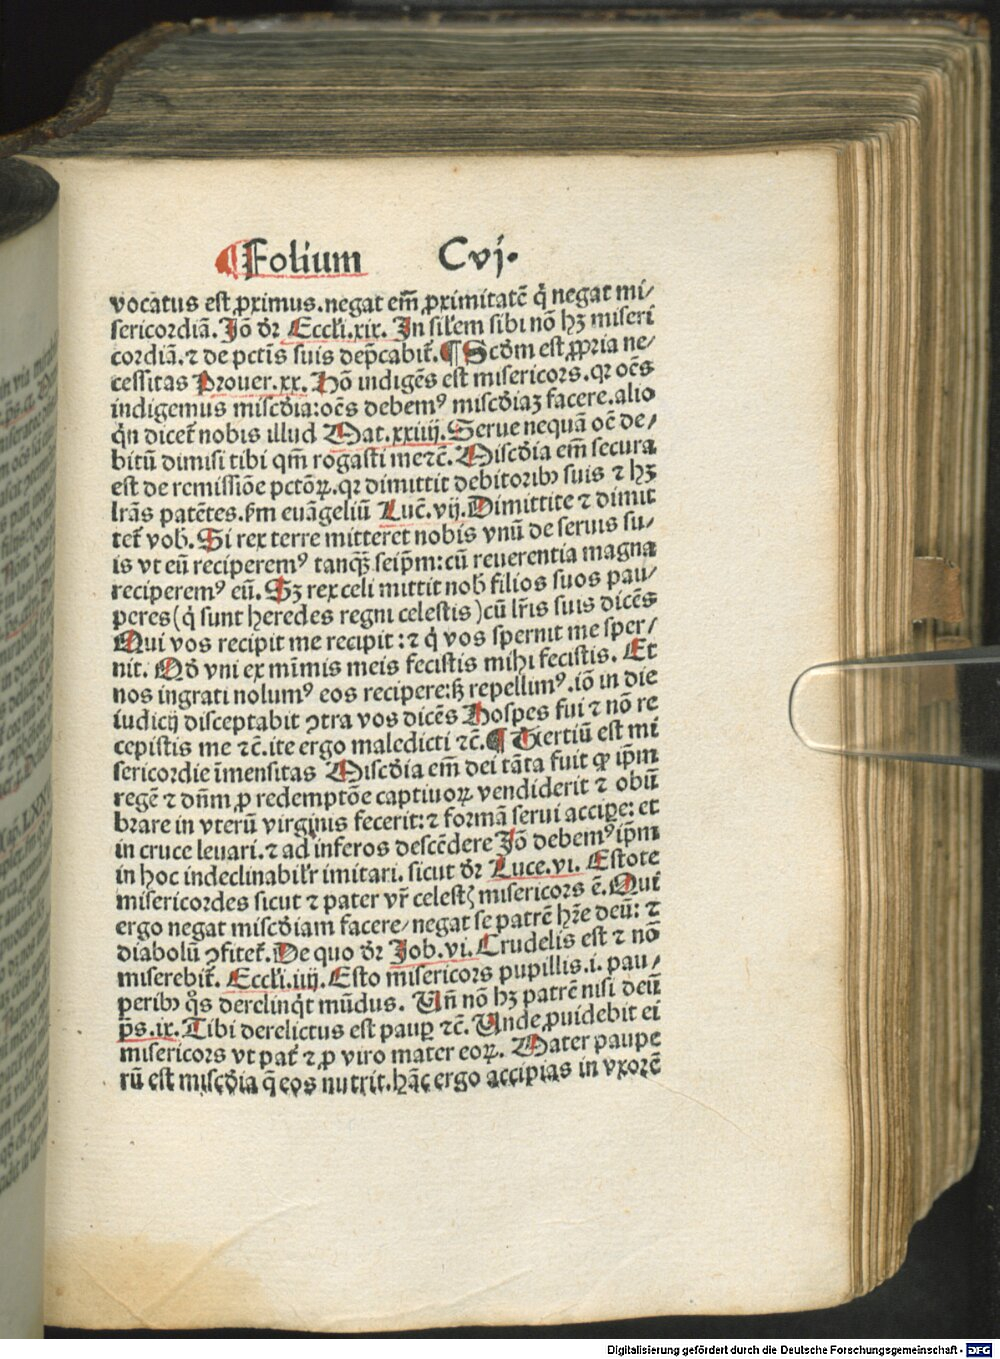 Folium Cvj.
vocatus est ꝓximus.negat em̄ ꝓximitatē q̇ negat mi/
sericordiā. Jō dr̄ Eccli̅.xix. In silem sibi nō hꝫ miseri
cordiā.⁊ de pctīs suis dep̄cabit̄. ¶ Scd̄m est ꝓpria ne/
cessitas Prouer.xx. Hō indigēs est misericors.qꝛ oēs
indigemus miscd̄ia:oēs debemꝰ miscd̄iaꝫ facere.alio
q̇n dicet nobis illud Mat.xxiiij. Serue nequā oē de/
bitū dimisi tibi qm̄ rogasti me⁊c̄. Miscd̄ia em̄ secura
est de remissiōe pctōꝝ.qꝛ dimittit debitoribꝰ suis ⁊ hꝫ
lrās patētes.ẜm euāgeliū Luc̄.vij. Dimittite ⁊ dimit
tet̄ vob. Si rex terre mitteret nobis vnū de seruis su/
is vt eū reciperemꝰ tanqꝫ seip̄m:cū reuerentia magna
reciperemꝰ eū. Sꝫ rex celi mittit nob̄ filios suos pau/
peres (q̇ sunt heredes regni celestis) cū lr̄is suis dicēs
Qui vos recipit me recipit:⁊ q̇ vos spernit me sper/
nit. Qd̄ vni ex mīmis meis fecistis mihi fecistis. Et
nos ingrati nolumꝰ eos recipere:ẜꝫ repellimꝰ.iō in die
iudicij disceptabit ꝯtra vos dicēs Hospes fui ⁊ nō re
cepistis me ⁊c̄.ite ergo maledicti ⁊c̄. ¶ Tertiū est mi
sericordie īmensitas Miscd̄ia em̄ dei tāta fuit ꝙ ip̄m
regē ⁊ dn̄m ꝓ redemptōe captiuoꝝ vendiderit ⁊ obū
brare in vterū virginis fecerit:⁊ formā serui accipe: et
in cruce leuari.⁊ ad inferos descēdere Jō debemꝰ ip̄m
in hoc indeclinabilr̄ imitari. sicut dr̄ Luce.vi. Estote
misericordes sicut ⁊ pater vr̄ celestꝭ misericors ē. Qui
ergo negat miscd̄iam facere/negat se patrē hr̄e deū: ⁊
diabolū ꝯfitet̄. De quo dr̄ Job.vi. Crudelis est ⁊ nō
miserebit̄. Eccli̅.iiij. Esto misericors pupillis.i. pau/
peribꝰ q̊s derelinq̇t mūdus. Vn̄ nō hꝫ patrē nisi deū
p̄s.ix. Tibi derelictus est pauꝑ ⁊c̄. Vnde ꝓuidebit ei
misericors vt pat̄ ⁊ ꝓ viro mater eoꝝ. Mater paupe
rū est miscd̄ia q̄ eos nutrit.hāc ergo accipias in vxorē
Digitalisierung gefördert durch die Deutsche Forschungsgemeinschaft - DFG